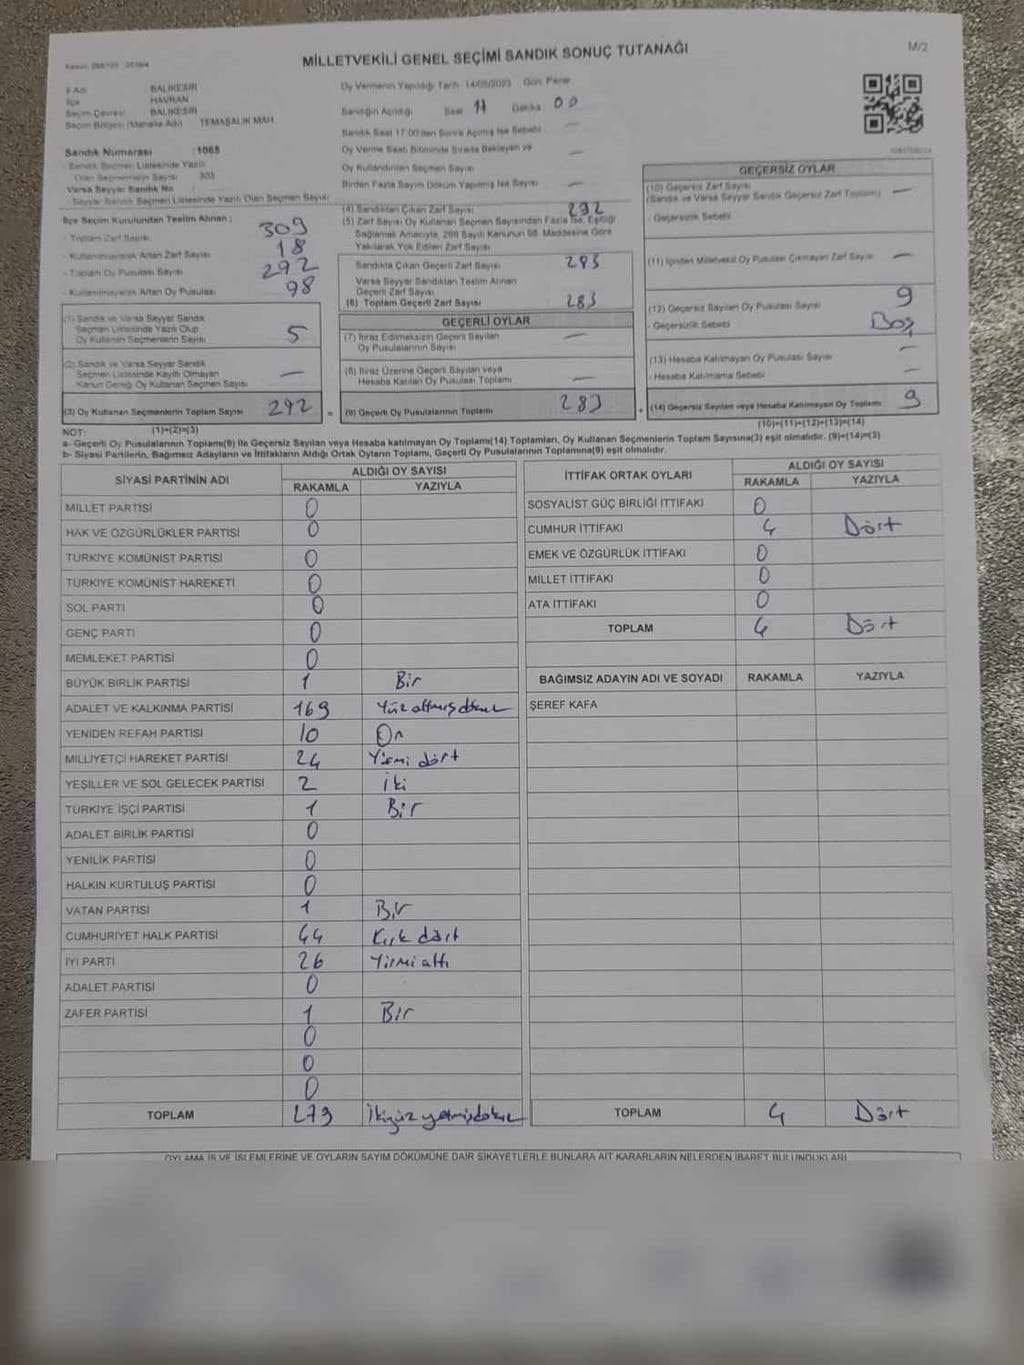 MİLLETVEKİLİ GENEL SEÇİMİ SANDIK SONUÇ TUTANAĞI
M/2
İl Adı BALIKESİR
İlçe HAVRAN
Seçim Çevresi BALIKESİR
Seçim Bölgesi (Mahalle Adı) TEMAŞALIK MAH.
Sandık Numarası : 1065
Sandık Seçmen Listesinde Yazılı
Olan Seçmenlerin Sayısı 303
Varsa Seyyar Sandık No
Seyyar Sandık Seçmen Listesinde Yazılı Olan Seçmen Sayısı
Oy Vermenin Yapıldığı Tarih 14/05/2023 Gün: Pazar
Sandığın Açıldığı Saat 17 Dakika 00
Sandık Saat 17.00'den Sonra Açılmış İse Sebebi —
Oy Verme Saati Bitiminde Sırada Bekleyen ve
Oy Kullandırılan Seçmen Sayısı —
Birden Fazla Sayım Döküm Yapılmış İse Sayısı —
İlçe Seçim Kurulundan Teslim Alınan :
- Toplam Zarf Sayısı 309
- Kullanılmayarak Artan Zarf Sayısı 18
- Toplam Oy Pusulası Sayısı 292
- Kullanılmayarak Artan Oy Pusulası 98
(1) Sandık ve Varsa Seyyar Sandık
Seçmen Listesinde Yazılı Olup
Oy Kullanan Seçmenlerin Sayısı 5
(2) Sandık ve Varsa Seyyar Sandık
Seçmen Listesinde Kayıtlı Olmayan
Kanun Gereği Oy Kullanan Seçmen Sayısı —
(3) Oy Kullanan Seçmenlerin Toplam Sayısı 292 =
(1)+(2)=(3)
(4) Sandıktan Çıkan Zarf Sayısı 292
(5) Zarf Sayısı Oy Kullanan Seçmen Sayısından Fazla İse, Eşitliği
Sağlamak Amacıyla, 298 Sayılı Kanunun 98. Maddesine Göre
Yakılarak Yok Edilen Zarf Sayısı
Sandıkta Çıkan Geçerli Zarf Sayısı 283
Varsa Seyyar Sandıktan Teslim Alınan
Geçerli Zarf Sayısı
(6) Toplam Geçerli Zarf Sayısı 283
GEÇERLİ OYLAR
(7) İtiraz Edilmeksizin Geçerli Sayılan
Oy Pusulalarının Sayısı —
(8) İtiraz Üzerine Geçerli Sayılan veya
Hesaba Katılan Oy Pusulası Toplamı —
(9) Geçerli Oy Pusulalarının Toplamı 283 +
GEÇERSİZ OYLAR
(10) Geçersiz Zarf Sayısı
(Sandık ve Varsa Seyyar Sandık Geçersiz Zarf Toplamı) —
- Geçersizlik Sebebi
(11) İçinden Milletvekili Oy Pusulası Çıkmayan Zarf Sayısı —
(12) Geçersiz Sayılan Oy Pusulası Sayısı 9
- Geçersizlik Sebebi Boş
(13) Hesaba Katılmayan Oy Pusulası Sayısı —
- Hesaba Katılmama Sebebi —
(14) Geçersiz Sayılan veya Hesaba Katılmayan Oy Toplamı 9
(10)+(11)+(12)+(13)=(14)
NOT:
a- Geçerli Oy Pusulalarının Toplamı(9) ile Geçersiz Sayılan veya Hesaba katılmayan Oy Toplamı(14) Toplamları, Oy Kullanan Seçmenlerin Toplam Sayısına(3) eşit olmalıdır. (9)+(14)=(3)
b- Siyasi Partilerin, Bağımsız Adayların ve İttifakların Aldığı Ortak Oyların Toplamı, Geçerli Oy Pusulalarının Toplamına(9) eşit olmalıdır.
SİYASİ PARTİNİN ADI ALDIĞI OY SAYISI
RAKAMLA YAZIYLA
MİLLET PARTİSİ 0
HAK VE ÖZGÜRLÜKLER PARTİSİ 0
TÜRKİYE KOMÜNİST PARTİSİ 0
TÜRKİYE KOMÜNİST HAREKETİ 0
SOL PARTİ 0
GENÇ PARTİ 0
MEMLEKET PARTİSİ 0
BÜYÜK BİRLİK PARTİSİ 1 Bir
ADALET VE KALKINMA PARTİSİ 169 Yüz altmış dokuz
YENİDEN REFAH PARTİSİ 10 On
MİLLİYETÇİ HAREKET PARTİSİ 24 Yirmi dört
YEŞİLLER VE SOL GELECEK PARTİSİ 2 İki
TÜRKİYE İŞÇİ PARTİSİ 1 Bir
ADALET BİRLİK PARTİSİ 0
YENİLİK PARTİSİ 0
HALKIN KURTULUŞ PARTİSİ 0
VATAN PARTİSİ 1 Bir
CUMHURİYET HALK PARTİSİ 44 Kırk dört
İYİ PARTİ 26 Yirmi altı
ADALET PARTİSİ 0
ZAFER PARTİSİ 1 Bir
0
0
0
TOPLAM 279 İkiyüz yetmiş dokuz
İTTİFAK ORTAK OYLARI ALDIĞI OY SAYISI
RAKAMLA YAZIYLA
SOSYALİST GÜÇ BİRLİĞİ İTTİFAKI 0
CUMHUR İTTİFAKI 4 Dört
EMEK VE ÖZGÜRLÜK İTTİFAKI 0
MİLLET İTTİFAKI 0
ATA İTTİFAKI 0
TOPLAM 4 Dört
BAĞIMSIZ ADAYIN ADI VE SOYADI RAKAMLA YAZIYLA
ŞEREF KAFA
TOPLAM 4 Dört
OYLAMA İŞ VE İŞLEMLERİNE VE OYLARIN SAYIM DÖKÜMÜNE DAİR ŞİKAYETLERLE BUNLARA AİT KARARLARIN NELERDEN İBARET BULUNDUKLARI